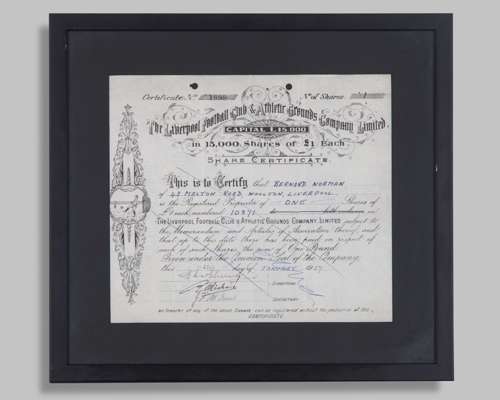 Certificate Nº 1998 Nº of Shares 1
The Liverpool Football Club & Athletic Grounds Company Limited.
CAPITAL £15,000
in 15,000 Shares of £1 Each
SHARE CERTIFICATE
This is to Certify that BERNARD NORMAN
of 42 MELTON ROAD, WOOLTON, LIVERPOOL
is the Registered Proprietor of ONE Shares of
£1 each, numbered 10371 both inclusive in
THE LIVERPOOL FOOTBALL CLUB & ATHLETIC GROUNDS COMPANY, LIMITED subject to
the Memorandum and Articles of Association thereof and
that up to this date there has been paid in respect of
each of such Shares the sum of One Pound
Given under the Common Seal of the Company
this day of 1957
DIRECTORS
SECRETARY
No transfer of any of the above Shares can be registered without the production of this
CERTIFICATE